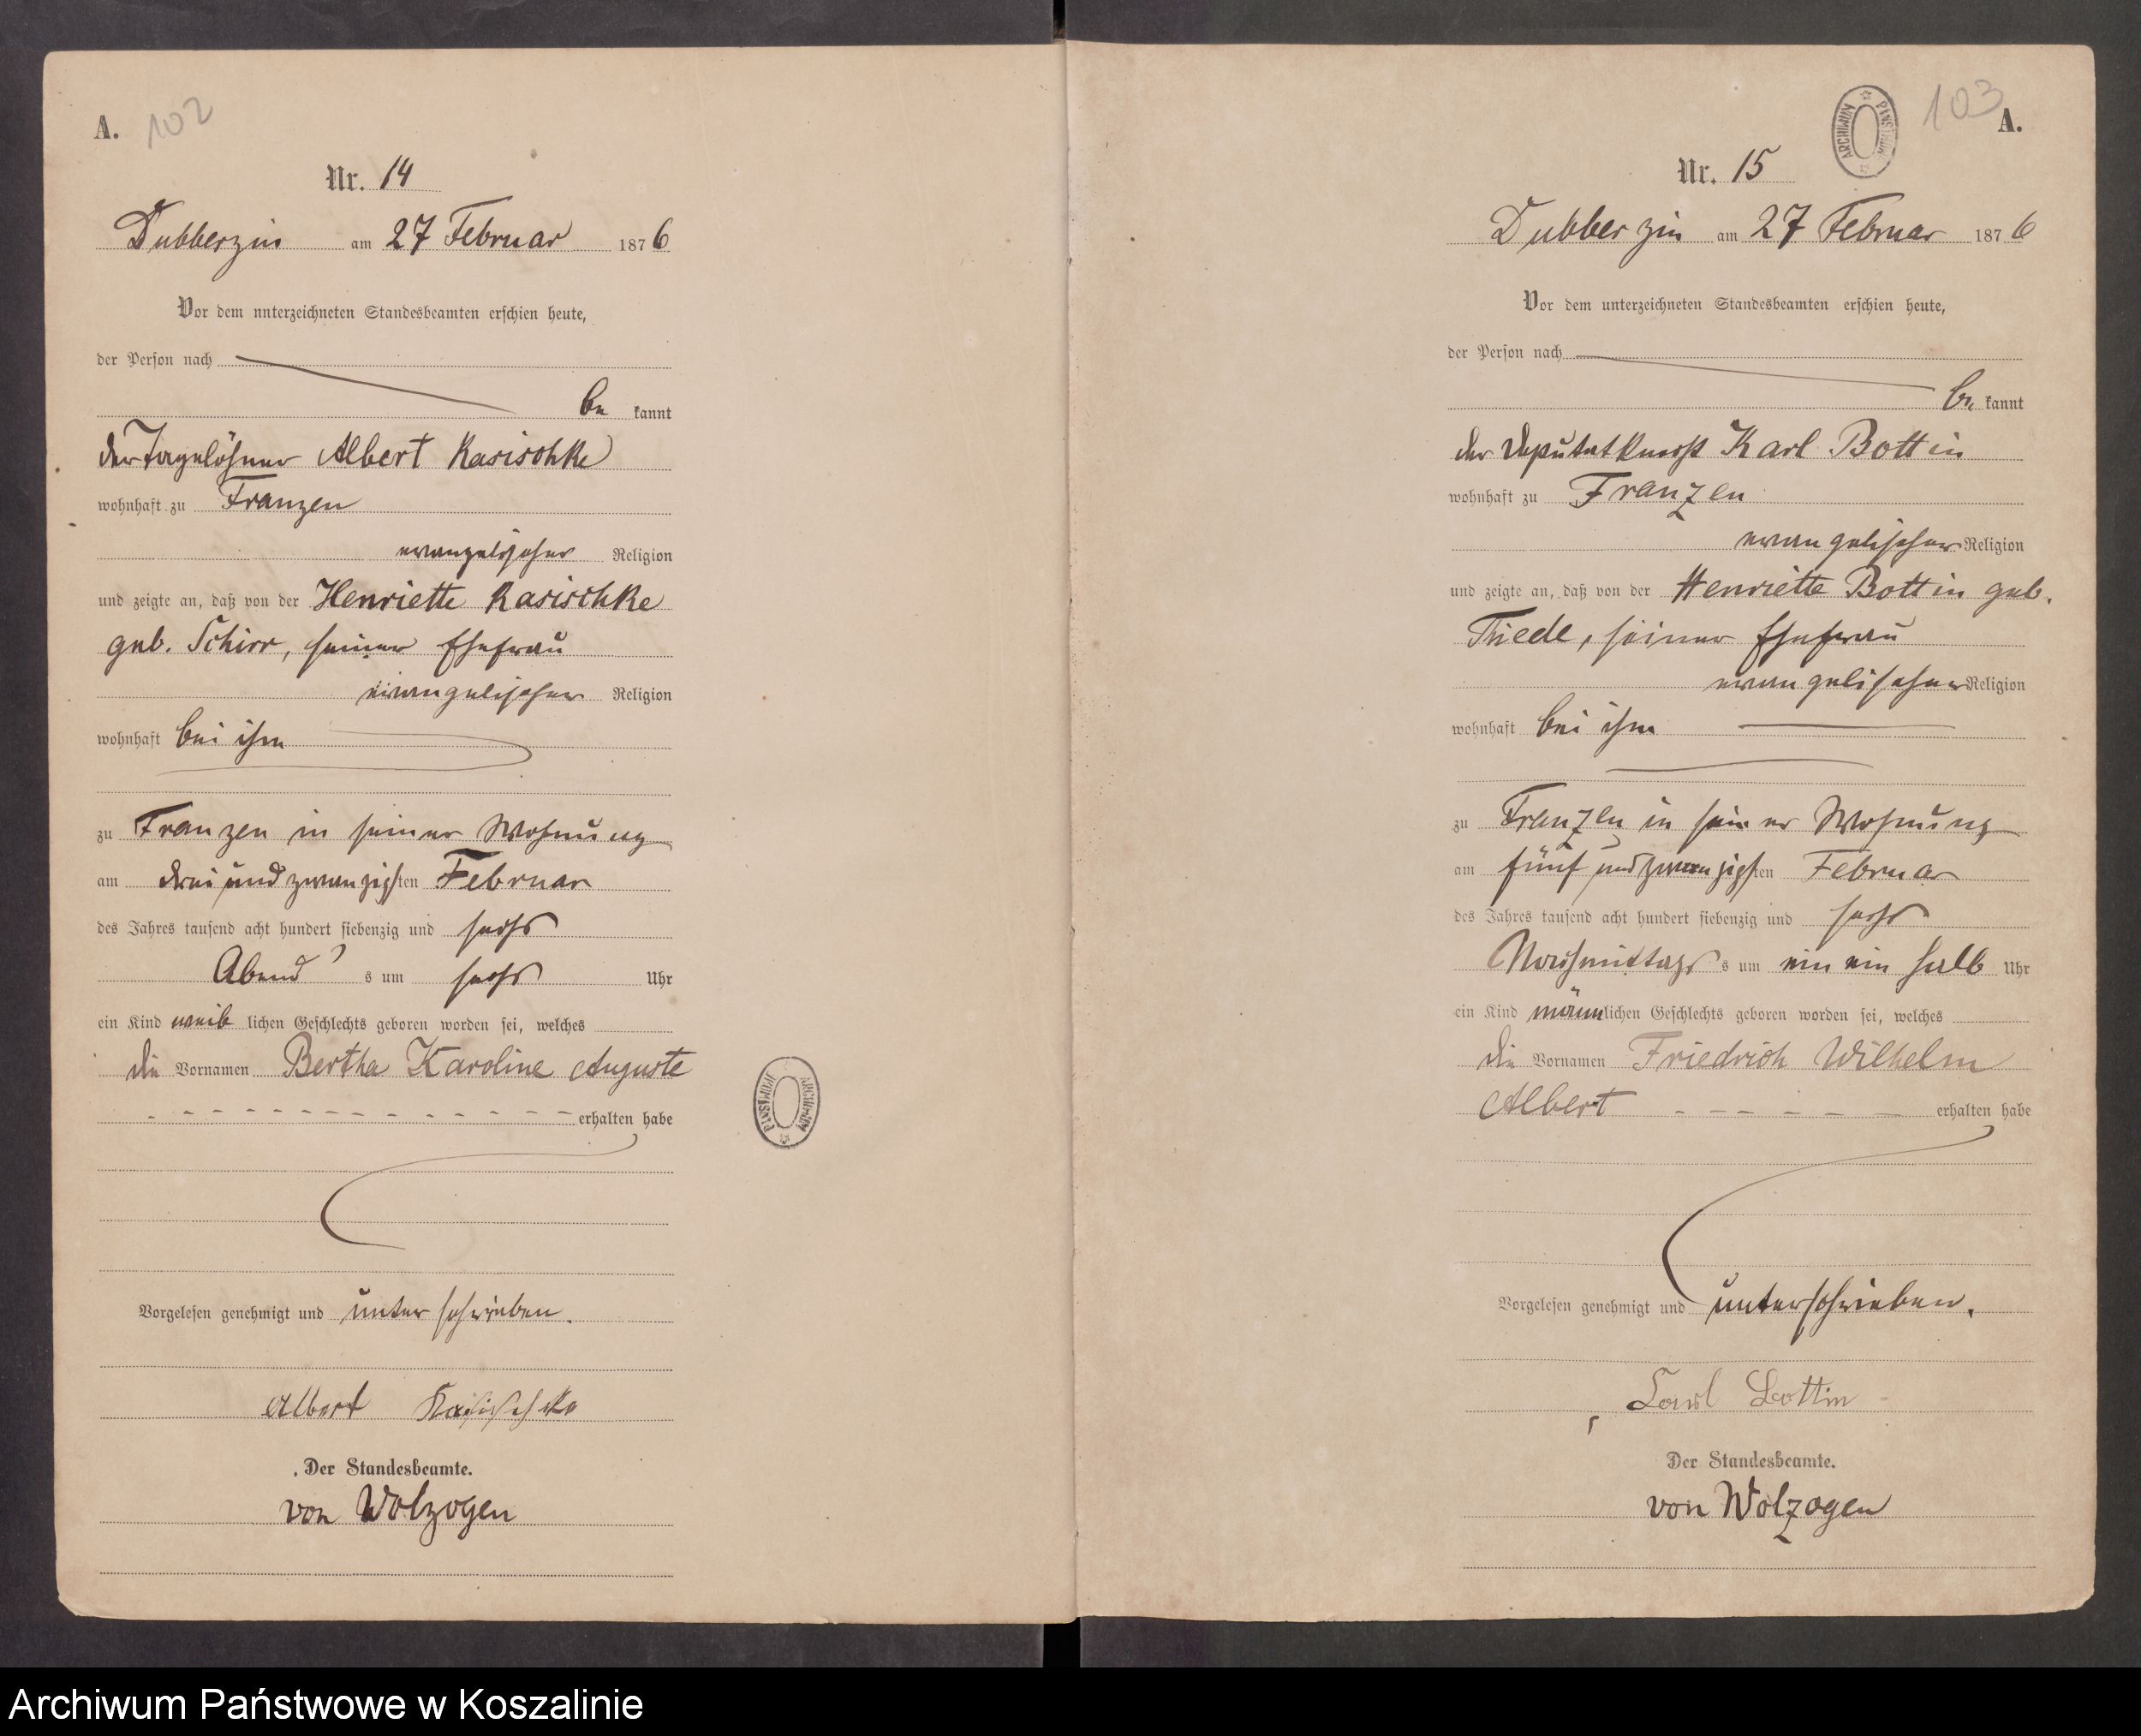 A. 102
Nr. 14
Dubberzin am 27 Februar 1876
Vor dem unterzeichneten Standesbeamten erschien heute,
der Person nach
be kannt
der Tagelöhner Albert Kasischke
wohnhaft zu Franzen
evangelischer Religion
und zeigte an, daß von der Henriette Kasischke
geb. Schirr, seiner Ehefrau
evangelischer Religion
wohnhaft bei ihm
zu Franzen in seiner Wohnung
am drei und zwanzigsten Februar
des Jahres tausend acht hundert siebenzig und sechs
Abend s um sechs Uhr
ein Kind weib lichen Geschlechts geboren worden sei, welches
die Vornamen Bertha Karoline Auguste
erhalten habe
Vorgelesen genehmigt und unterschrieben.
Albert Kasischke
Der Standesbeamte.
von Wolzogen
ARCHIWUM PAŃSTWOWE
103 A.
ARCHIWUM PAŃSTWOWE
Nr. 15
Dubberzin am 27 Februar 1876
Vor dem unterzeichneten Standesbeamten erschien heute,
der Person nach
be kannt
der Deputatknecht Karl Bottin
wohnhaft zu Franzen
evangelischer Religion
und zeigte an, daß von der Henriette Bottin geb.
Thiede, seiner Ehefrau
evangelischer Religion
wohnhaft bei ihm
zu Franzen in seiner Wohnung
am fünf und zwanzigsten Februar
des Jahres tausend acht hundert siebenzig und sechs
Nachmittags s um ein ein halb Uhr
ein Kind männlichen Geschlechts geboren worden sei, welches
die Vornamen Friedrich Wilhelm
Albert erhalten habe
Vorgelesen genehmigt und unterschrieben.
Carl Bottin
Der Standesbeamte.
von Wolzogen
Archiwum Państwowe w Koszalinie